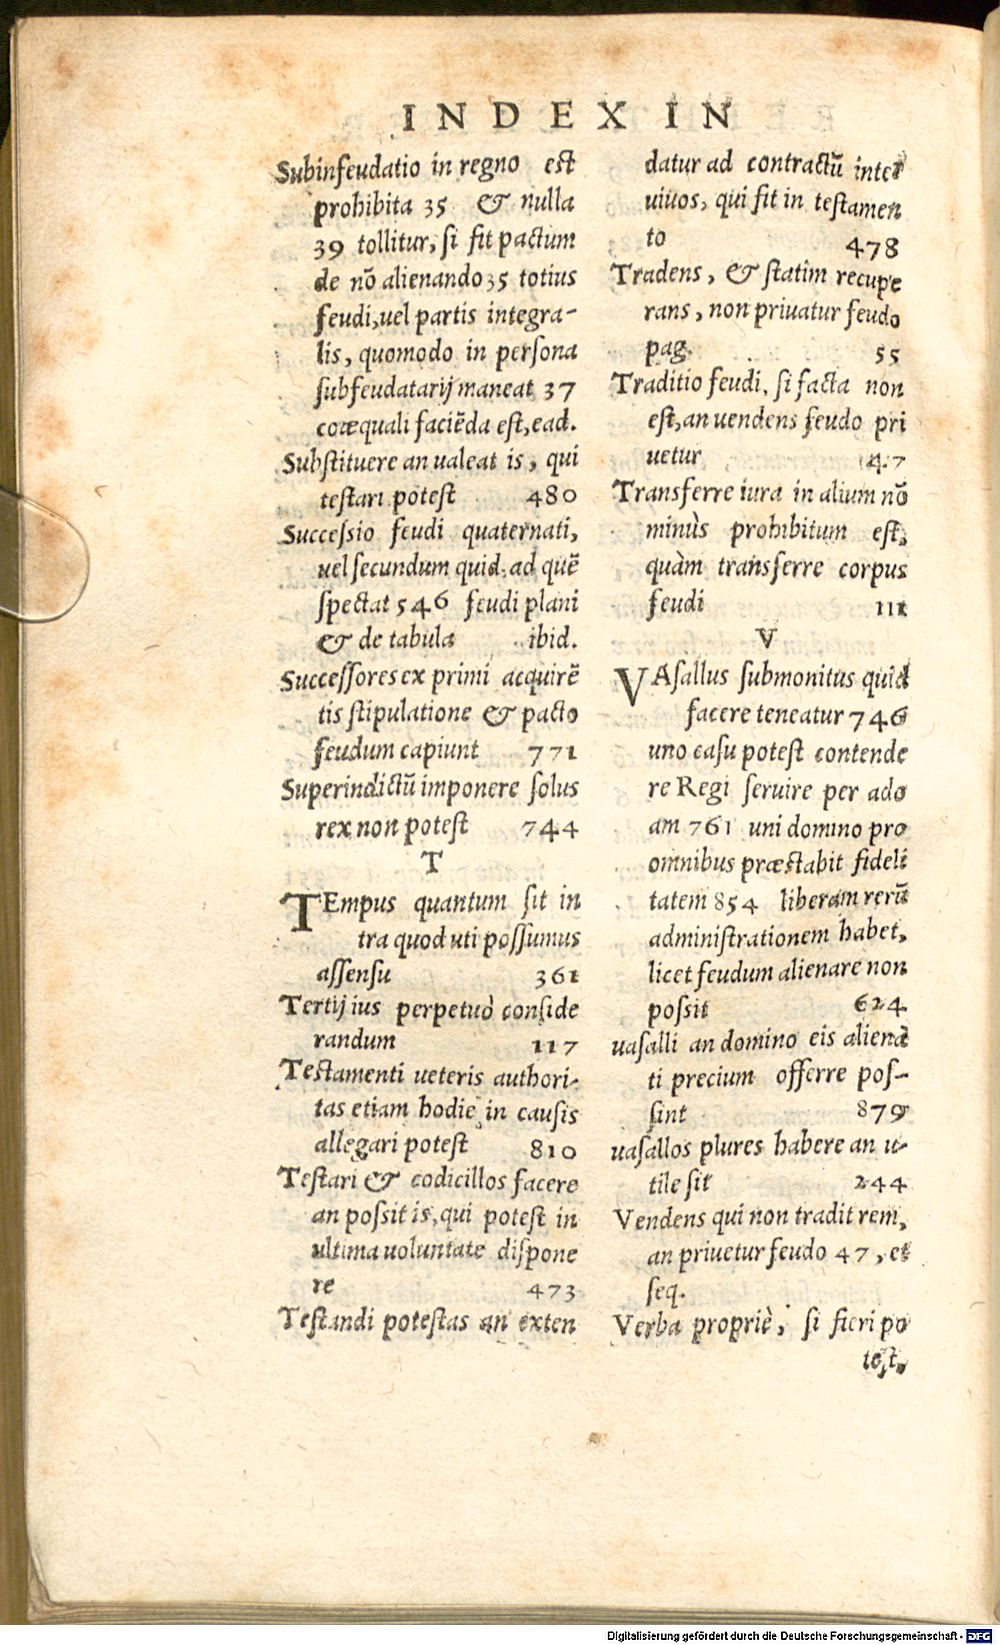 INDEX IN
Subinfeudatio in regno est
prohibita 35 & nulla
39 tollitur, si fit pactum
de nō alienando 35 totius
feudi, uel partis integra-
lis, quomodo in persona
subfeudatarij maneat 37
coæquali faciēda est, ead.
Substituere an ualeat is, qui
testari potest 480
Successio feudi quaternati,
uel secundum quid, ad quē
spectat 546 feudi plani
& de tabula ibid.
Successores ex primi acquirē
tis stipulatione & pacto
feudum capiunt 771
Superindictū imponere solus
rex non potest 744
T
TEmpus quantum sit in
tra quod uti possumus
assensu 361
Tertij ius perpetuò conside
randum 117
Testamenti ueteris authori-
tas etiam hodie in causis
allegari potest 810
Testari & codicillos facere
an possit is, qui potest in
ultima uoluntate dispone
re 473
Testandi potestas an exten
datur ad contractū inter
uiuos, qui fit in testamen
to 478
Tradens, & statim recupe
rans, non priuatur feudo
pag. 55
Traditio feudi, si facta non
est, an uendens feudo pri
uetur 47
Transferre iura in alium nō
minùs prohibitum est,
quàm transferre corpus
feudi 111
V
VAsallus submonitus quid
facere teneatur 746
uno casu potest contende
re Regi seruire per ado
am 761 uni domino pro
omnibus præstabit fideli
tatem 854 liberam rerū
administrationem habet,
licet feudum alienare non
possit 624
uasalli an domino eis alienā
ti precium offerre pos-
sint 879
uasallos plures habere an u-
tile sit 244
Vendens qui non tradit rem,
an priuetur feudo 47, et
seq.
Verba propriè, si fieri po
test,
Digitalisierung gefördert durch die Deutsche Forschungsgemeinschaft - DFG